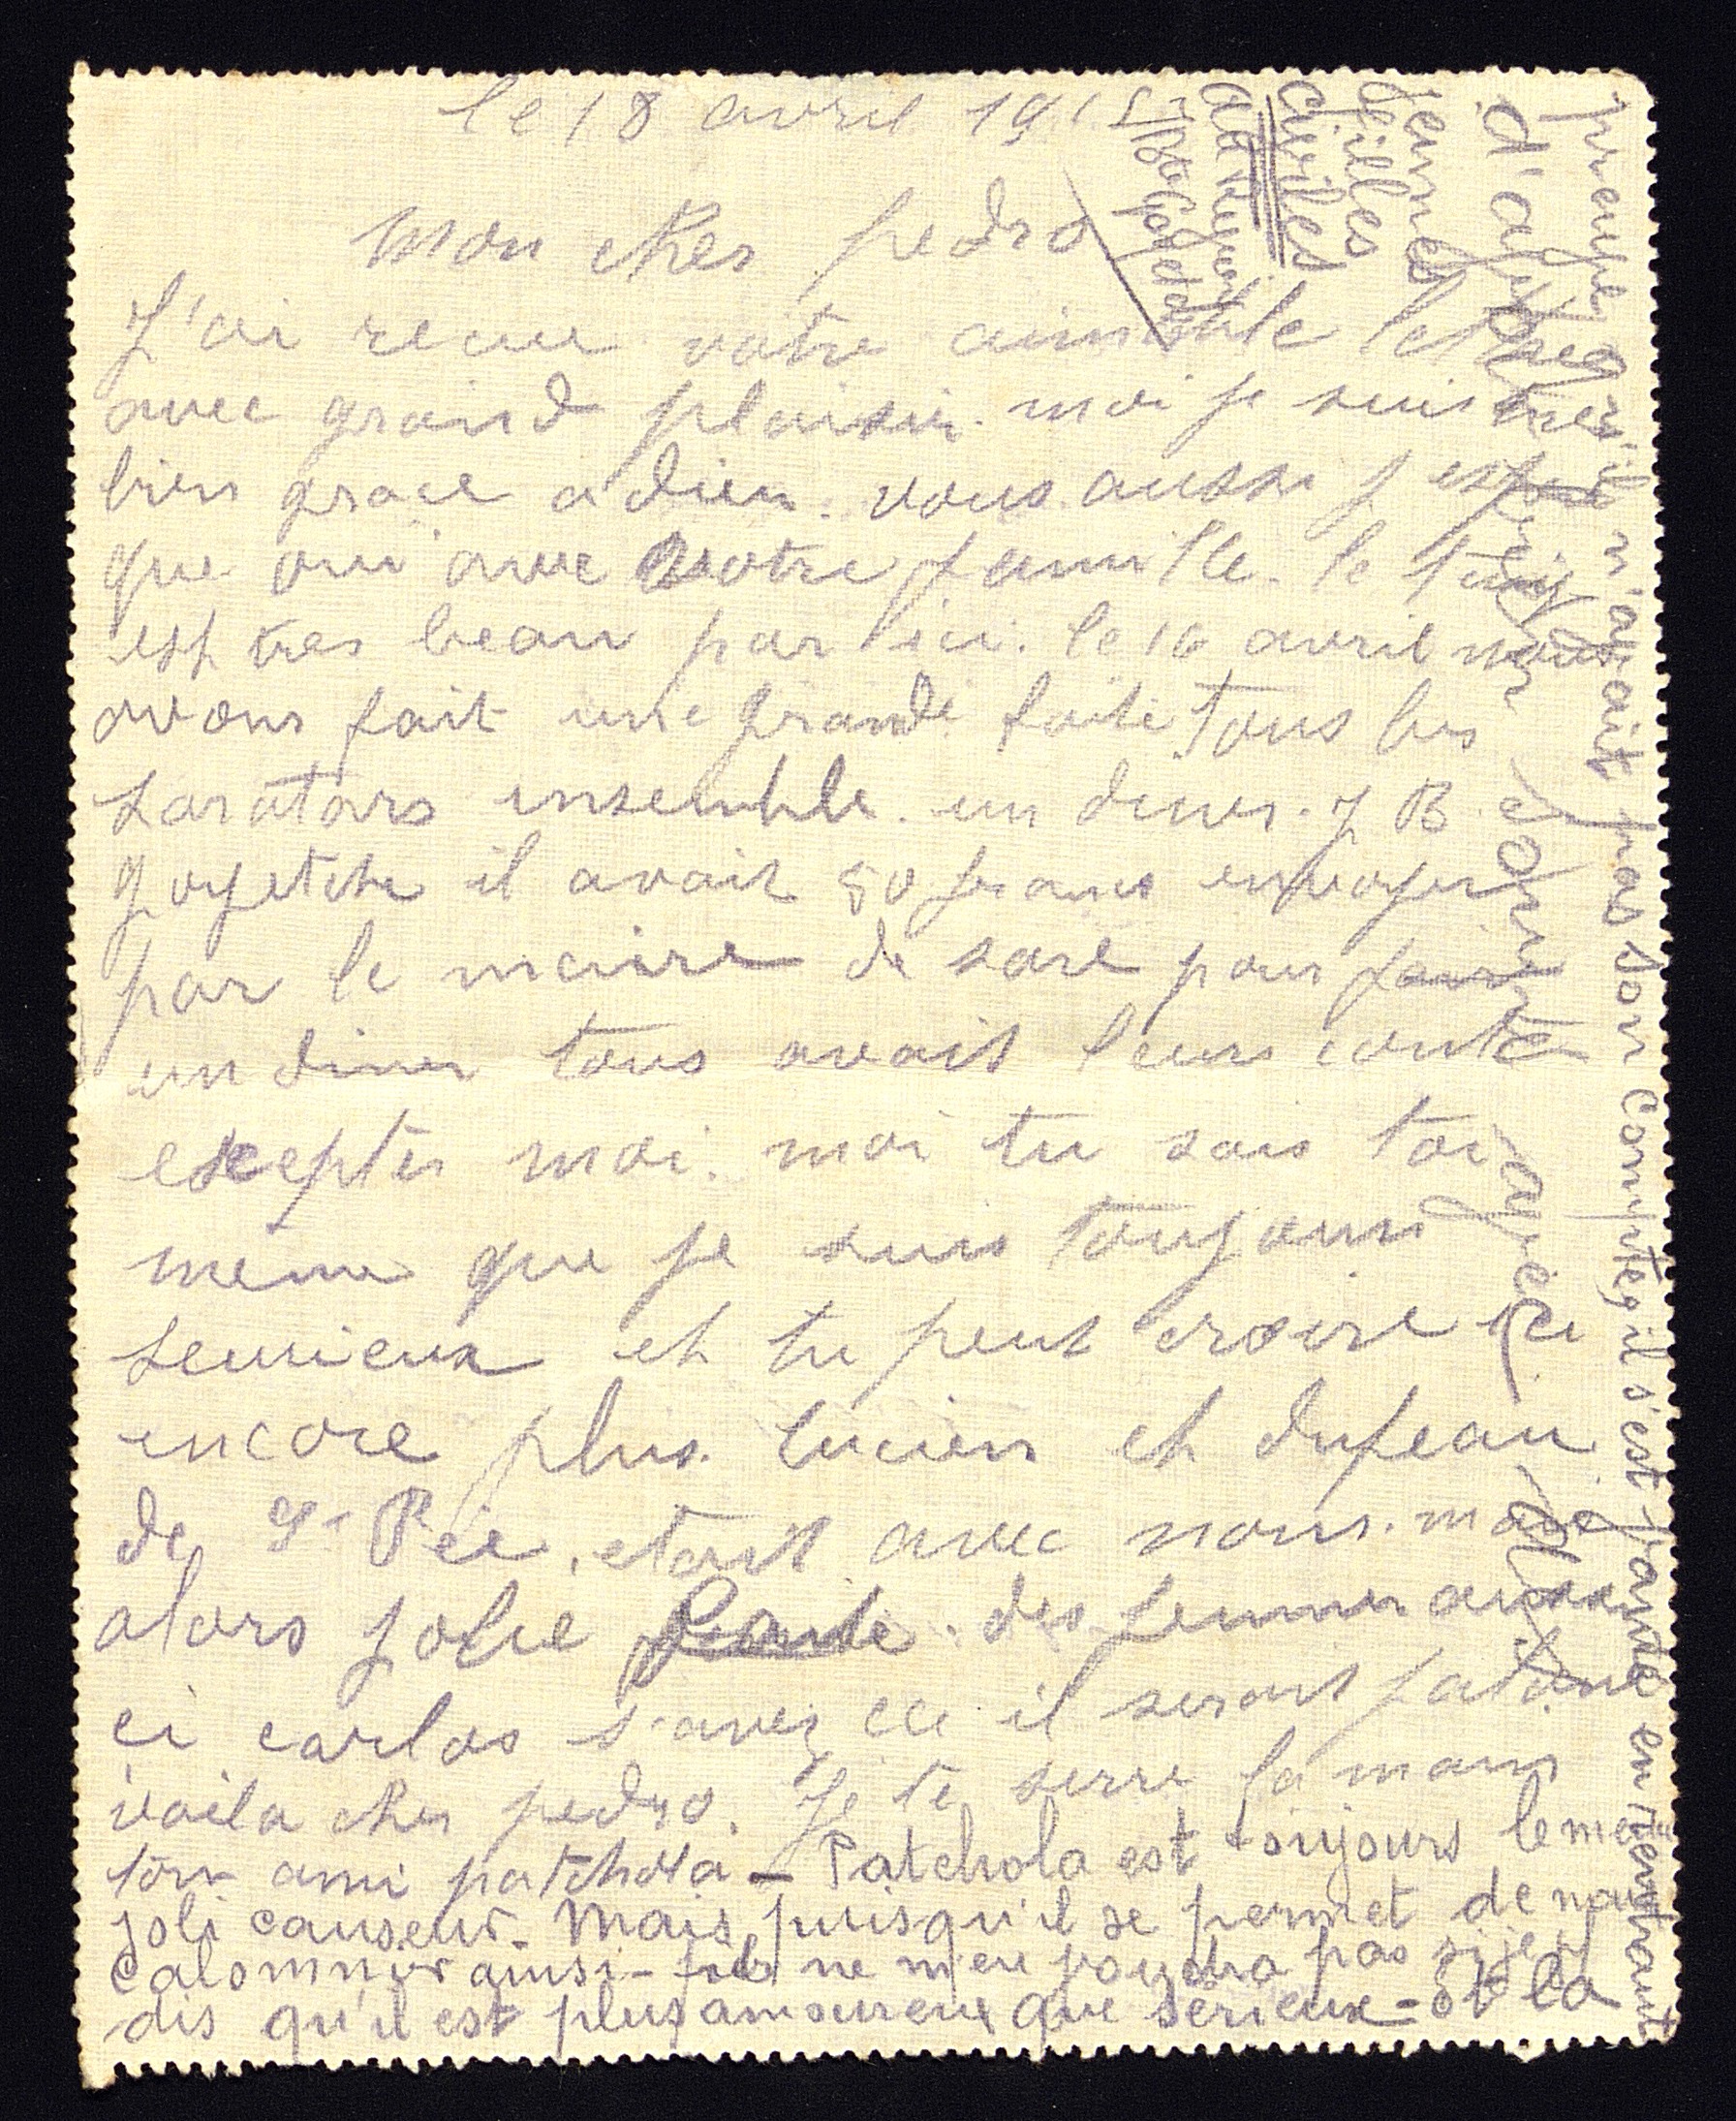 le 18 avril 1915
mon cher pedro
J'ai recue votre aimable lettre
avec grand plaisir. moi je suis tres
bien grace a dieu. vous aussi j espere
que oui avec votre famille. le temp
est tres beau par ici. le 16 avril nous
avons fait une grande faite tous les
saratars ensemble. un diner. J B
goyetche il avait 50 frans envoyer
par le maire de sare pour faire
un diner tous avait leurs conte
excepter moi. moi tu sais toi
meme que je suis toujours
seurieux et tu peut croire ici
encore plus. lucien et dufeau
de St Pée etait avec nous. mais
alors jolie faite. des femmes aussi
ci carlos s'avez ce il serait
voila cher pedro. Je te serre la main
ton ami patchola - Patchola est toujours le meme
joli causeur. Mais puisqu'il se permet de nous
calomnier ainsi - il ne m'en voudra pas si je
dis qu'il est plus amoureux que sérieux - Et la
preuve qu'il n'avait pas son compte, il s'est en rentrant
d'après
donné
avec
jeunes
filles
civiles